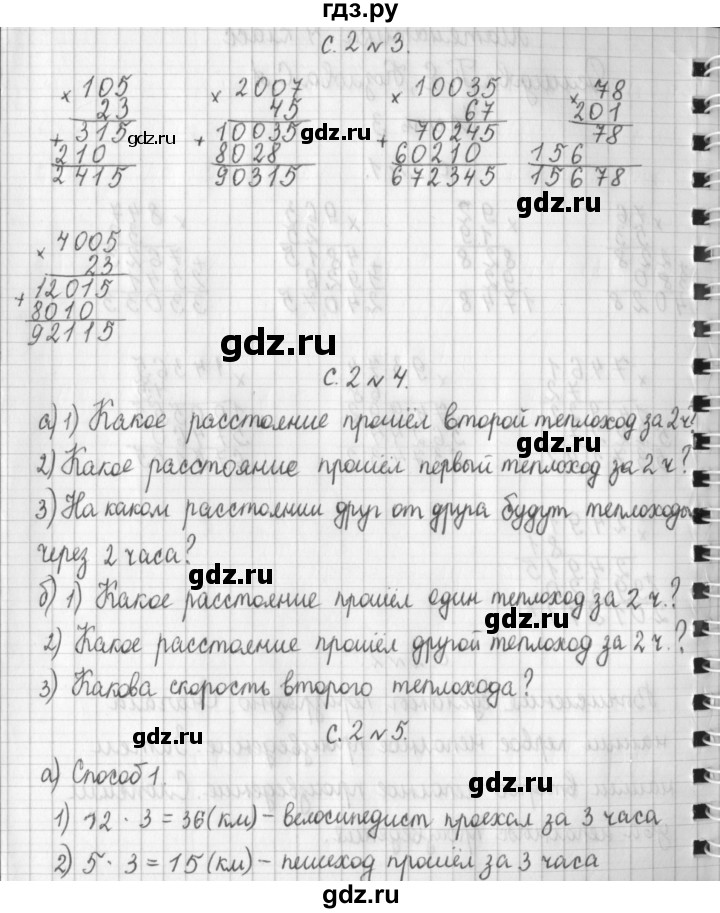 гдз.ру
с. 2 № 3.
× 105
23
+ 315
210
2415
× 2007
45
+ 10035
8028
90315
× 10035
67
+ 70245
60210
672345
× 78
201
78
156
15678
gdz.ru
gdz.ru
gdz.ru
× 4005
23
+ 12015
8010
92115
gdz.ru
с. 2 № 4.
а) 1) Какое расстояние прошёл второй теплоход за 2 ч?
gdz.ru
2) Какое расстояние прошёл первый теплоход за 2 ч?
3) На каком расстоянии друг от друга будут теплоходы
через 2 часа?
gdz.ru
б) 1) Какое расстояние прошёл один теплоход за 2 ч.?
gdz.ru
2) Какое расстояние прошёл другой теплоход за 2 ч.?
3) Какова скорость второго теплохода?
gdz.ru
с. 2 № 5.
а) Способ 1.
gdz.ru
1) 12 · 3 = 36 (км) – велосипедист проехал за 3 часа
2) 5 · 3 = 15 (км) – пешеход прошёл за 3 часа
gdz.ru